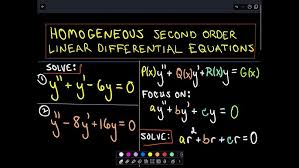 HOMOGENEOUS SECOND ORDER
LINEAR DIFFERENTIAL EQUATIONS
SOLVE:
① y"+y'-6y=0
② y"-8y'+16y=0
P(x)y"+Q(x)y'+R(x)y=G(x)
FOCUS ON:
ay"+by'+cy=0
SOLVE: ar²+br+cr=0